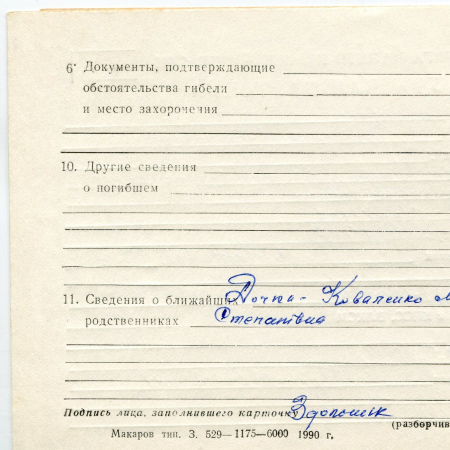 6. Документы, подтверждающие
обстоятельства гибели
и место захоронения
10. Другие сведения
о погибшем
11. Сведения о ближайших Дочка - Коваленко
родственниках Степановна
Подпись лица, заполнившего карточку
(разборчив
Макаров тип. З. 529—1175—6000 1990 г.